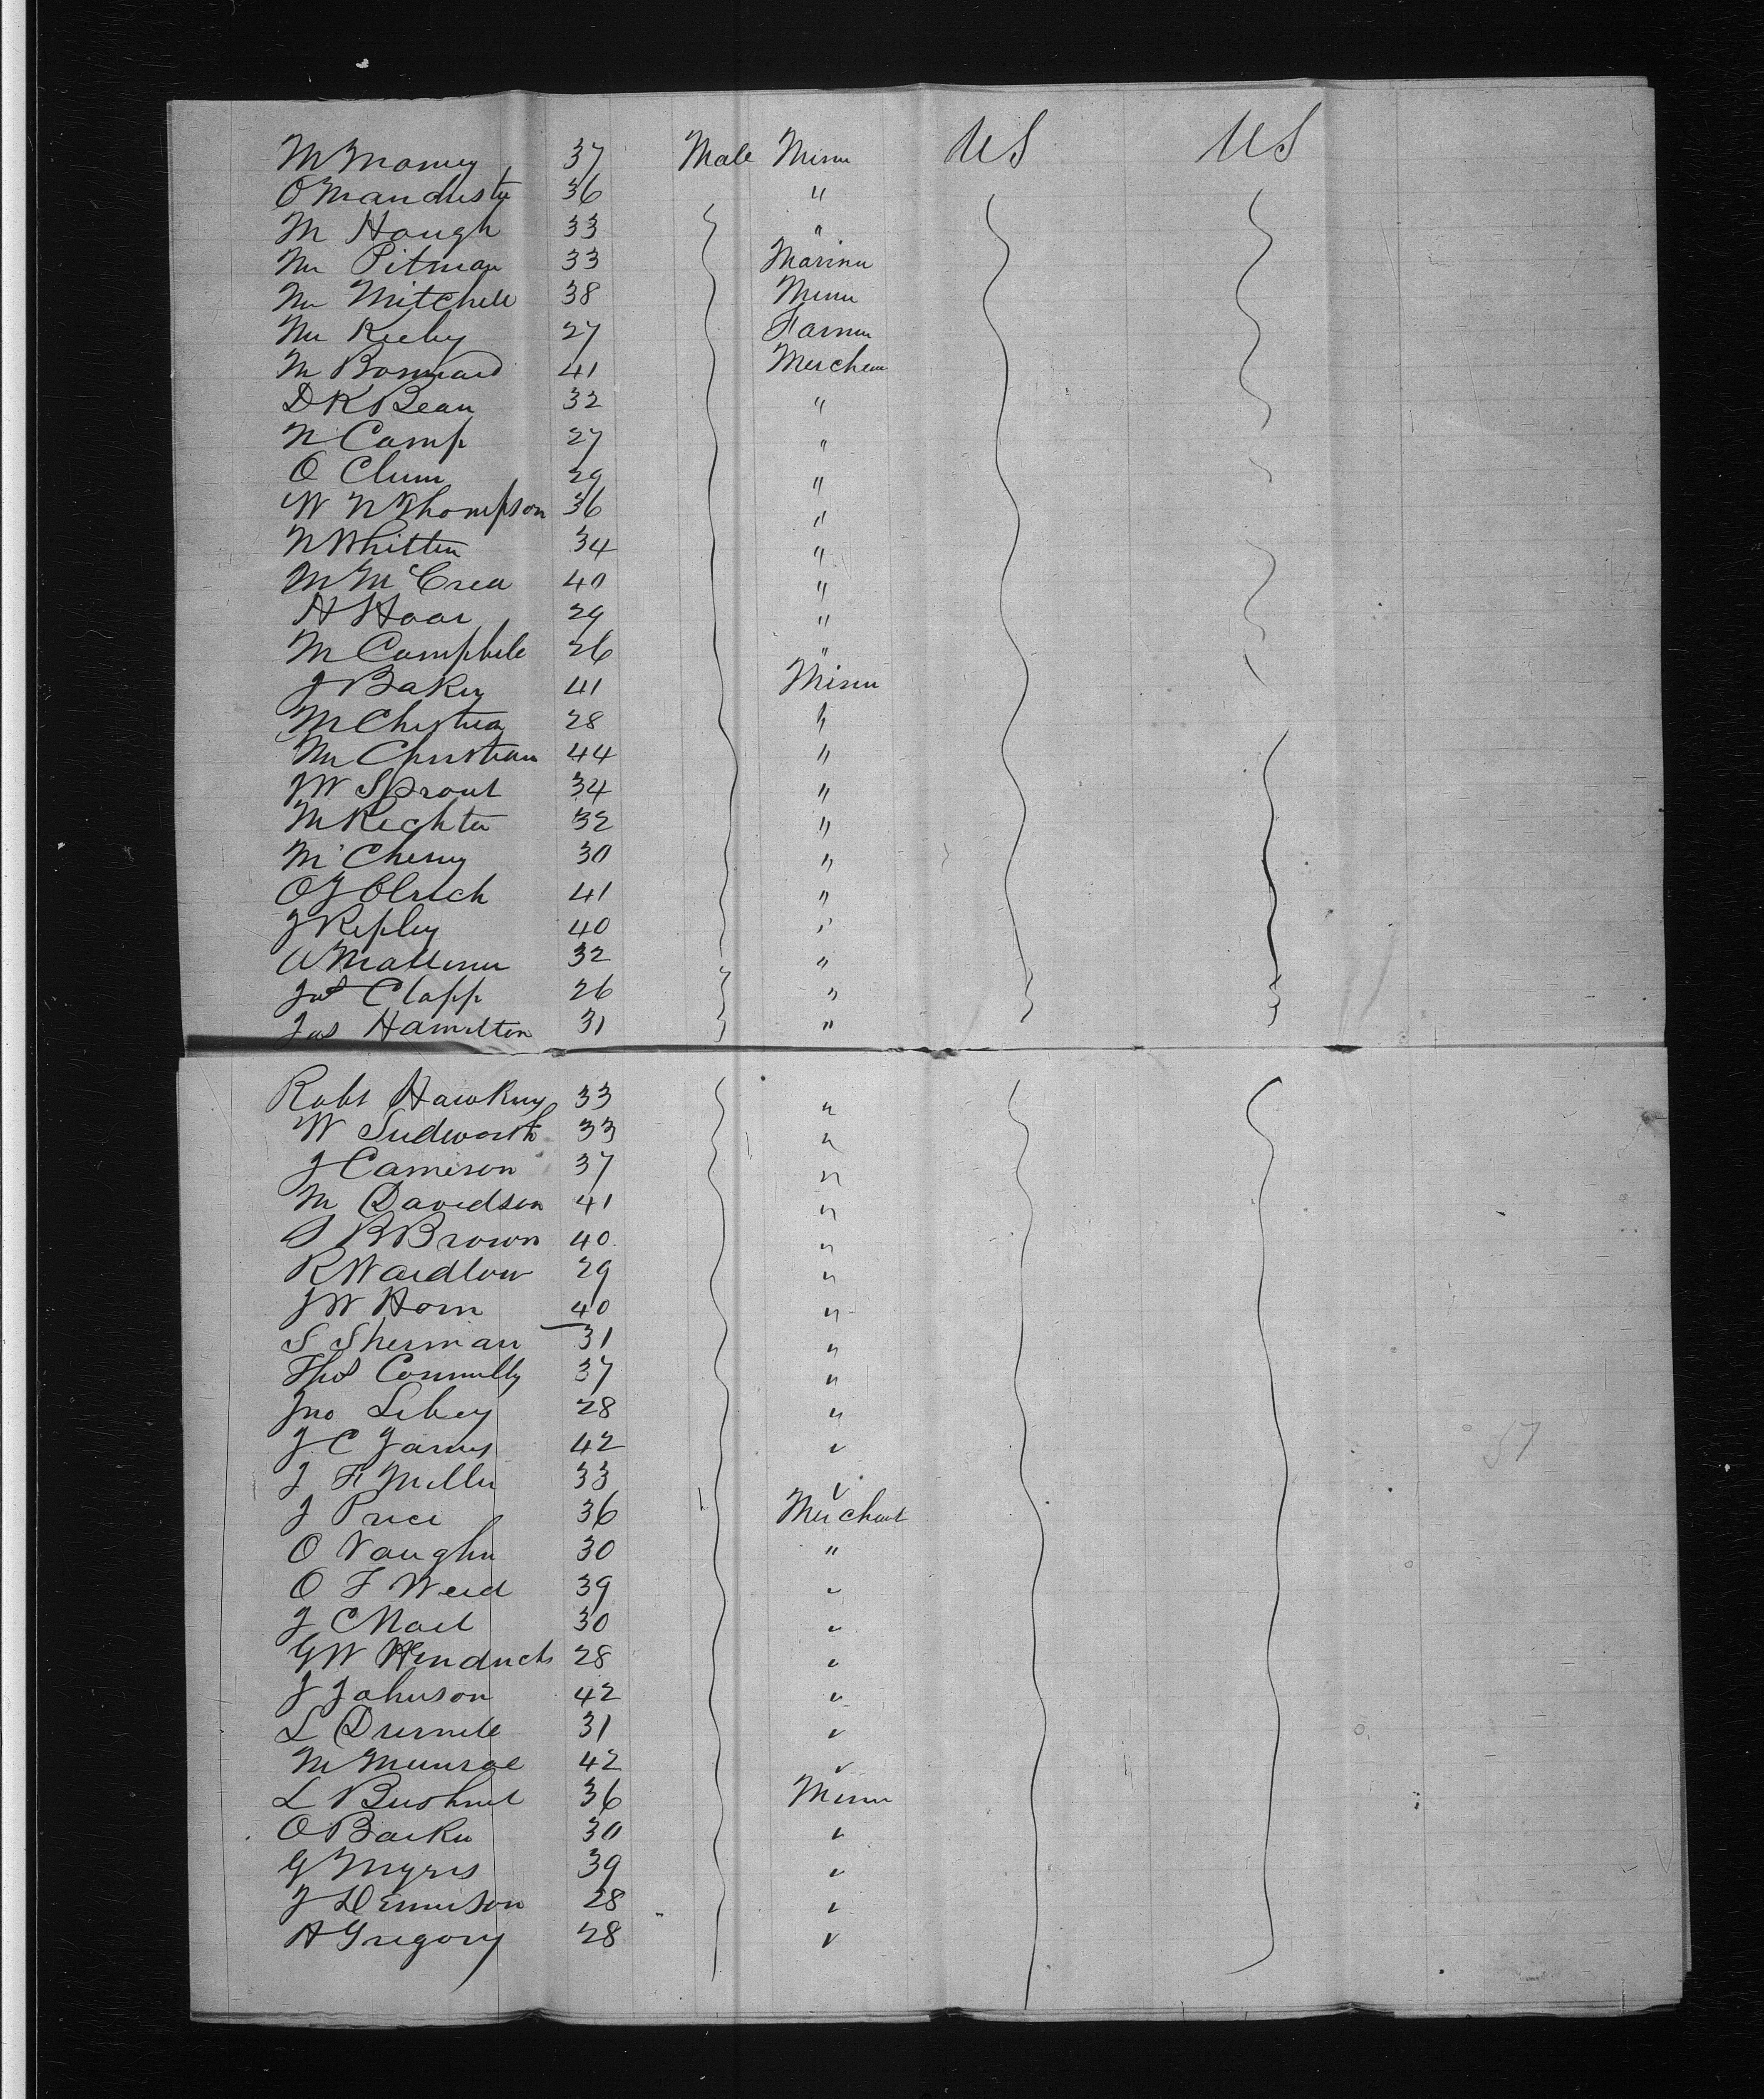 M Money 37 Male Miner US US
O Manchester 36 "
M Hough 33 "
Mr Pitman 33 Mariner
Mr Mitchell 38 Miner
Mr Kelby 27 Farmer
M 41 Merchan
D K Bean 32 "
N Camp 27 "
O Clum 29 "
W N Thompson 36 "
N Whitten 34 "
M McCrea 40 "
H Hoar 29 "
M Campbele 26 "
J Baker 41 Miner
M 28 "
Mr Christian 44 "
J W Sprout 34 "
M Richter 32 "
M Cherry 30 "
O J Olrich 41 "
J Ripley 40 "
32 "
Jas Clapp 26 "
Jas Hamilton 31 "
Robt Hawkins 33 "
W Sudworth 33 "
J Cameron 37 "
M Davidson 41 "
S B Brown 40 "
R Wardlow 29 "
J W Horn 40 "
S Sherman 31 "
Thos Connully 37 "
Jno Libey 28 "
J C James 42 "
J F Miller 33 "
J Price 36 Merchant
O Vaughn 30 "
O F Weid 39 "
J C 30 "
G W Hendricks 28 "
J Johnson 42 "
L 31 "
M Munroe 42 "
L Bushnel 36 Miner
O Barker 30 "
G Myres 39 "
J Dennison 28 "
A Gregory 28 "
57